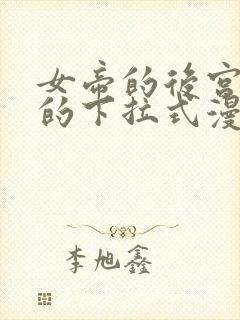 女帝的后宫
的下拉式漫
李旭鑫